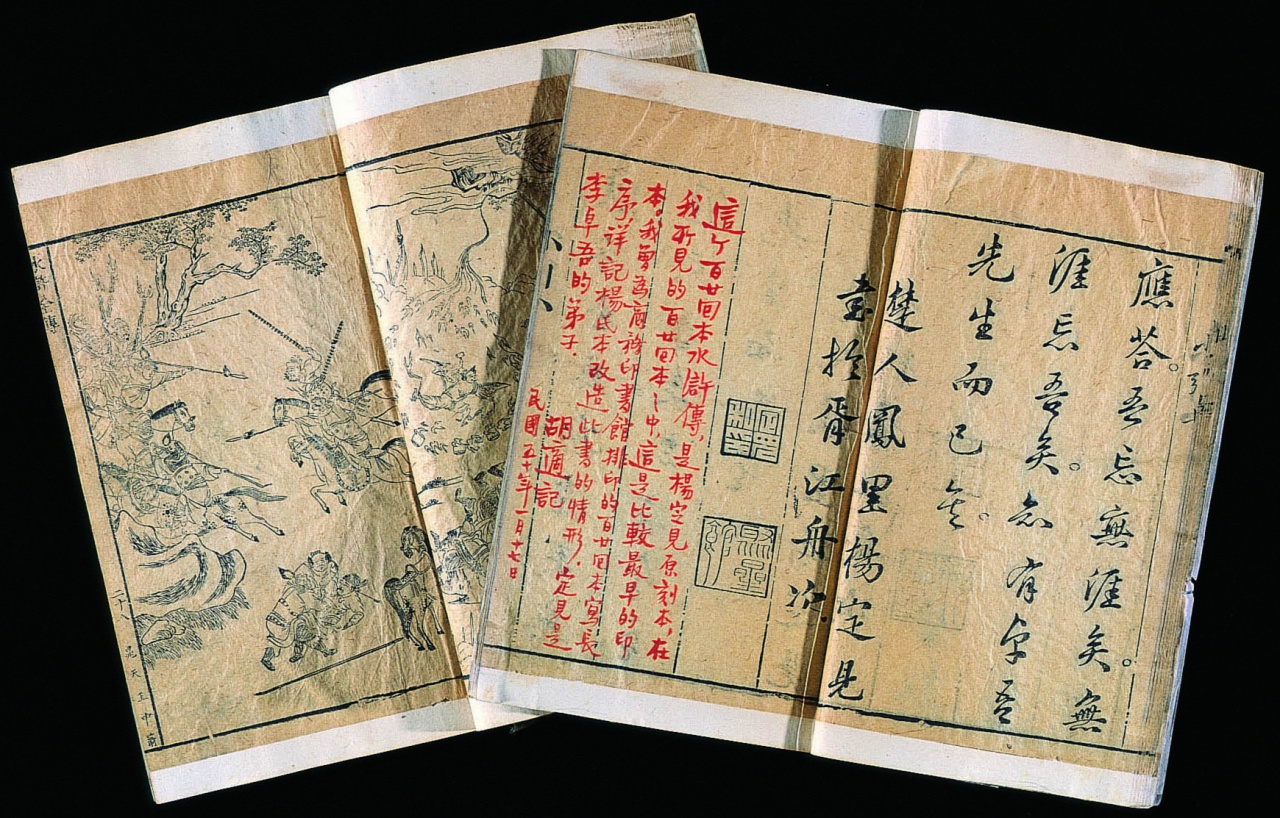 應荅。吾忘無涯矣。無
涯忘吾矣。有卓吾
先生而已矣。
楚人鳳里楊定見
書於胥江舟次
這个百廿回本水滸傳，是楊定見原刻本，在
我所見的百廿回本之中，這是比較最早的印
本。我曾為商務印書館排印的百廿回本寫長
序，詳記楊氏本改造此書的情形．定見是
李卓吾的弟子．
胡適記
民國五十年一月十七日
水滸全傳
二十 晁天王中箭